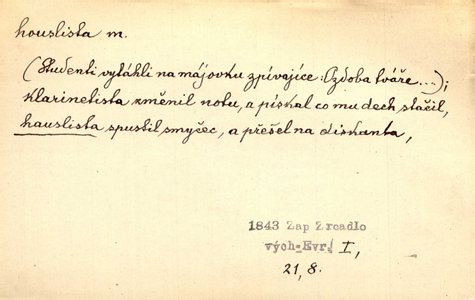 houslista m.
(Studenti vytáhli na májovku zpívajíce: Ozdoba tváře...);
klarinetista změnil notu, a pískal co mu dech stačil,
hauslista spustil smyčec, a přešel na diskanta,
1843 Zap Zrcadlo
vých-Evr. I,
21, 8.